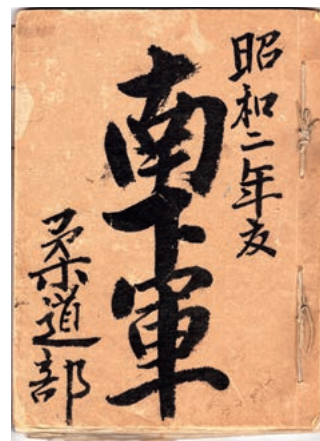 昭和二年
南下軍
柔道部